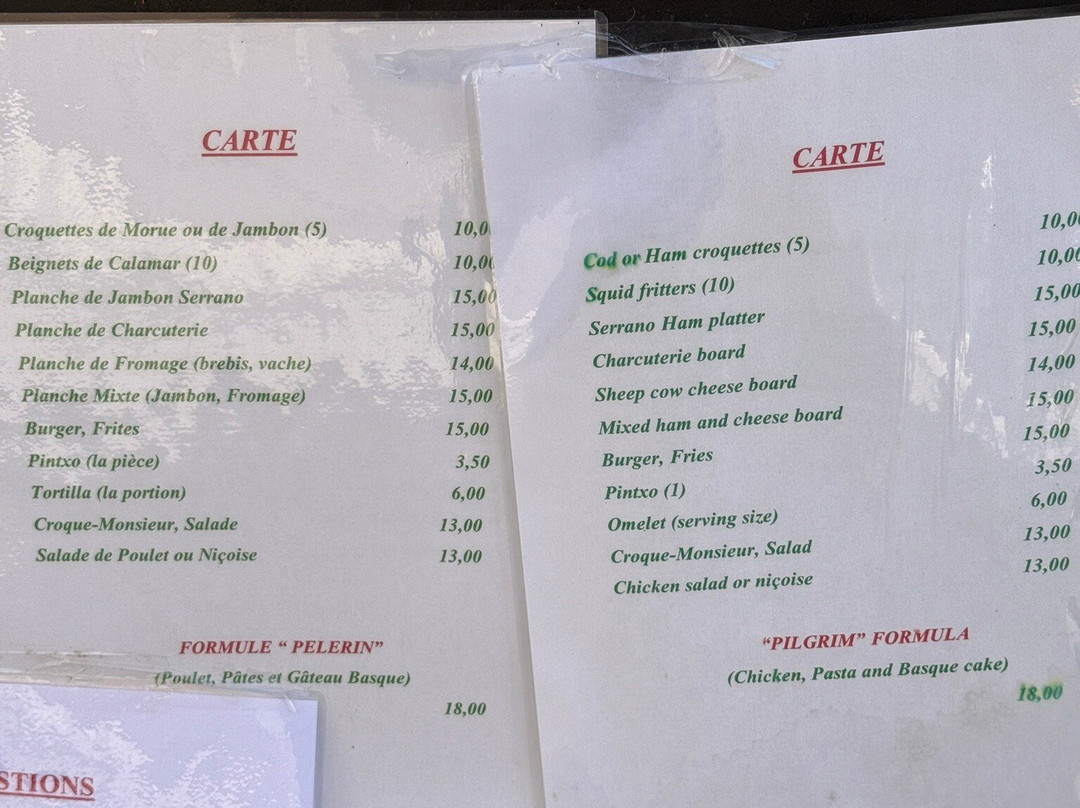 CARTE
Croquettes de Morue ou de Jambon (5) 10,0
Beignets de Calamar (10) 10,00
Planche de Jambon Serrano 15,00
Planche de Charcuterie 15,00
Planche de Fromage (brebis, vache) 14,00
Planche Mixte (Jambon, Fromage) 15,00
Burger, Frites 15,00
Pintxo (la pièce) 3,50
Tortilla (la portion) 6,00
Croque-Monsieur, Salade 13,00
Salade de Poulet ou Niçoise 13,00
FORMULE “ PELERIN”
(Poulet, Pâtes et Gâteau Basque)
18,00
STIONS
CARTE
Cod or Ham croquettes (5) 10,00
Squid fritters (10) 10,00
Serrano Ham platter 15,00
Charcuterie board 15,00
Sheep cow cheese board 14,00
Mixed ham and cheese board 15,00
Burger, Fries 15,00
Pintxo (1) 3,50
Omelet (serving size) 6,00
Croque-Monsieur, Salad 13,00
Chicken salad or niçoise 13,00
“PILGRIM” FORMULA
(Chicken, Pasta and Basque cake)
18,00